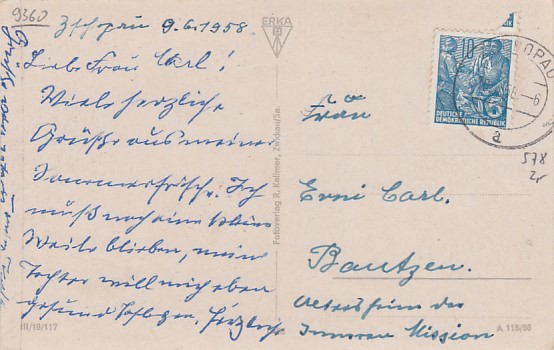 9360
Zschopau 9.6.1958.
Liebe Frau Carl!
Viele herzliche
Grüße aus meiner
Sommerfrische. Ich
muß noch eine kleine
Weile bleiben, meine
Tochter will mich eben
gesund pflegen. Herzliche
Grüße
ERKA
Fotoverlag R. Kallmer, Zwickau/Sa.
III/19/117
10
DEUTSCHE
DEMOKRATISCHE REPUBLIK
OPAU
a
578
Frau
Erni Carl.
Bautzen.
Altersheim der
Inneren Mission
A 115/56